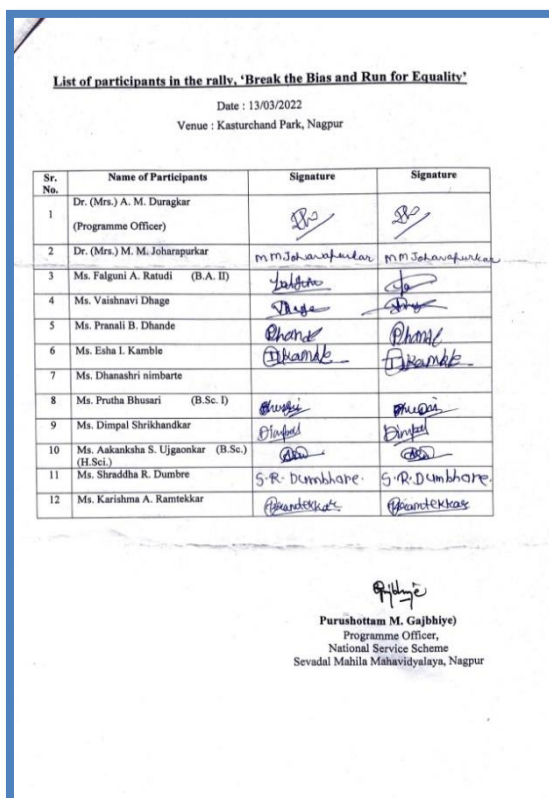 List of participants in the rally, ‘Break the Bias and Run for Equality’
Date : 13/03/2022
Venue : Kasturchand Park, Nagpur
Sr. No. Name of Participants Signature Signature
1 Dr. (Mrs.) A. M. Duragkar
(Programme Officer)
2 Dr. (Mrs.) M. M. Joharapurkar MMJoharapurkar MMJoharapurkar
3 Ms. Falguni A. Ratudi (B.A. II)
4 Ms. Vaishnavi Dhage Dhage
5 Ms. Pranali B. Dhande
6 Ms. Esha I. Kamble
7 Ms. Dhanashri nimbarte
8 Ms. Prutha Bhusari (B.Sc. I)
9 Ms. Dimpal Shrikhandkar Dimpal Dimpal
10 Ms. Aakanksha S. Ujgaonkar (B.Sc.)
(H.Sci.)
11 Ms. Shraddha R. Dumbre S.R. Dumbhare. S.R. Dumbhare.
12 Ms. Karishma A. Ramtekkar
Purushottam M. Gajbhiye)
Programme Officer,
National Service Scheme
Sevadal Mahila Mahavidyalaya, Nagpur